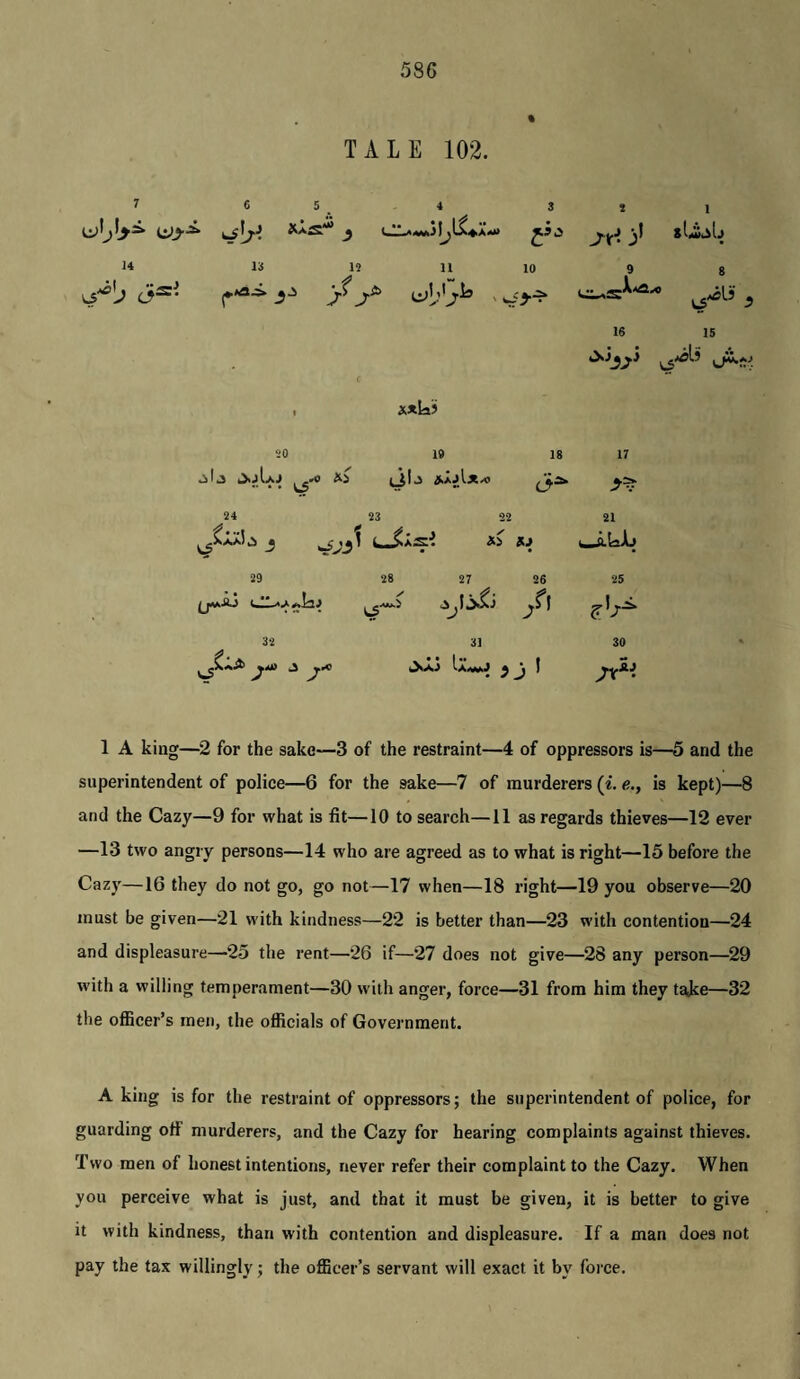 586
TALE 102.
7 6 5 4 3 2 1
پادشاه از بهر دفع ستمکارانست و شحنه برای خون خواران
14 13 12 11 10 9 8
و قاضی مصلحت جوی طراران هر گز دو خصم بحق راضی
16 15
پیش قاضی نروند
قطعه
20 19 18 17
چو حق معاینه دانی که می بباید داد
24 23 22 21
بلطف به که بجنگ آوری و دلتنگی
29 28 27 26 25
خراج اگر نگذارد کسی بطیبت نفس
32 31 30
بقهر ازو بستانند مرد سرهنگی
1 A king—2 for the sake—3 of the restraint—4 of oppressors is—5 and the
superintendent of police—6 for the sake—7 of murderers (i. e., is kept)—8
and the Cazy—9 for what is fit—10 to search—11 as regards thieves—12 ever
—13 two angry persons—14 who are agreed as to what is right—15 before the
Cazy—16 they do not go, go not—17 when—18 right—19 you observe—20
must be given—21 with kindness—22 is better than—23 with contention—24
and displeasure—25 the rent—26 if—27 does not give—28 any person—29
with a willing temperament—30 with anger, force—31 from him they take—32
the officer's men, the officials of Government.
A king is for the restraint of oppressors; the superintendent of police, for
guarding off murderers, and the Cazy for hearing complaints against thieves.
Two men of honest intentions, never refer their complaint to the Cazy. When
you perceive what is just, and that it must be given, it is better to give
it with kindness, than with contention and displeasure. If a man does not
pay the tax willingly; the officer's servant will exact it by force.